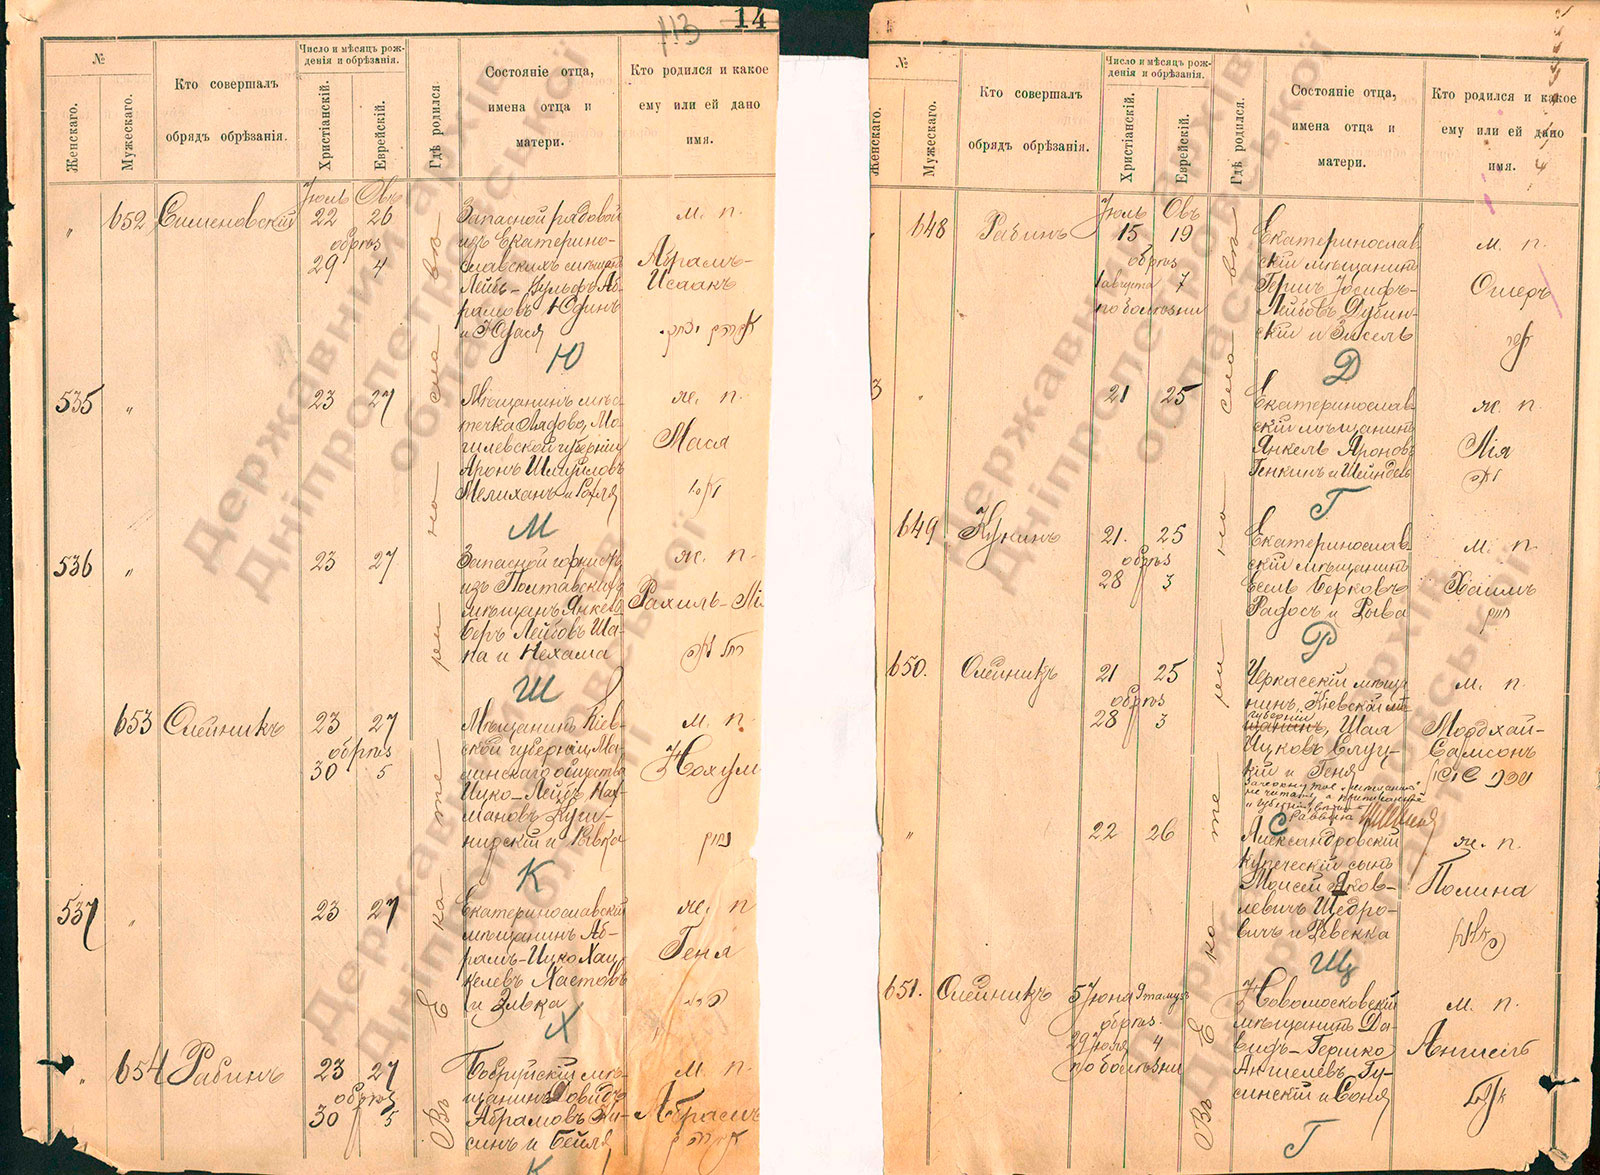 113
14
№
Женскаго.
Мужескаго.
Кто совершалъ
обрядъ обрѣзанія.
Число и мѣсяцъ рож-
денія и обрѣзанія.
Христіанскій.
Еврейскій.
Гдѣ родился
Состояніе отца,
имена отца и
матери.
Кто родился и какое
ему или ей дано
имя.
Въ Екатеринославѣ
652
Сименовскій
Іюль Овъ
22 26
обрѣз
29 4
Запасной рядовой
изъ Екатерино-
славскихъ мѣщанъ
Лейбъ-Вульфъ Аб-
рамовъ Юдинъ
и Юдася
м. п.
Абрамъ-
Исаакъ
Ю
535
23 27
Мѣщанинъ мѣс-
течка Лядово, Мо-
гилевской губерніи
Аронъ Шмуйловъ
Мелиханъ и Рохля
ж. п.
Мася
М
536
23 27
Запасной горнистъ
изъ Полтавскихъ
мѣщанъ Янкель-
Беръ Лейбовъ Ша-
на и Нехама
ж. п.
Рахиль-Лі
Ш
653
Олейникъ
23 27
обрѣз
30 5
Мѣщанинъ Кіев-
ской губерніи,
Ицко-Лейбъ Нах-
мановъ Куш-
нирскій и Ривка
м. п.
Нохум
נחום
К
537
23 27
Екатеринославскій
мѣщанинъ Аб-
рамъ-Ицко Хац-
келевъ Хастовъ
и Элька
ж. п
Геня
Х
654
Рабинъ
23 27
обрѣз
30 5
Бобруйскій мѣ-
щанинъ Довидъ
Абрамовъ
синъ и Бейля
м. п.
Абрамъ
К
№
Женскаго.
Мужескаго.
Кто совершалъ
обрядъ обрѣзанія.
Число и мѣсяцъ рож-
денія и обрѣзанія.
Христіанскій.
Еврейскій.
Гдѣ родился.
Состояніе отца,
имена отца и
матери.
Кто родился и какое
ему или ей дано
имя.
Въ Екатеринославѣ
648
Рабинъ
Іюль Овъ
15 19
обрѣз
1 августа 7
по болѣзни
Екатеринослав
скій мѣщанинъ
Гершъ Іосифъ-
Лейбовъ Дубин-
скій и Зисель
м. п.
Ошеръ
אשר
Д
3
21 25
Екатеринослав-
скій мѣщанинъ
Янкель Ароновъ
Генкинъ и Шейндель
ж. п.
Лія
Г
649
Кунинъ
21. 25
обрѣз
28 3
Екатеринослав-
скій мѣщанинъ
Есель Берковъ
Радосъ и Рыва
м. п.
Хаимъ
חיים
Р
650.
Олейникъ
21 25
обрѣз
28 3
Черкасскій мѣща
нинъ, Кіевской
губерніи
щанинъ, Шая
Ицковъ Слуц-
кій и Геня
м. п.
Мордхай-
Самсонъ
Зачеркнутое
не читать, а
С
22 26
Александровскій
купеческій сынъ
Моисей Яков-
левичъ Щедро-
вичъ и Ревекка
ж. п.
Полина
Щ
651.
Олейникъ
5 Іюня 9 тамузъ
обрѣз.
29 Іюля 4
по болѣзни
Новомосковскій
мѣщанинъ Да-
видъ-Гершко
Аншелевъ Гу-
синскій и Соня
м. п.
Аншель
Г
Державний архів
Дніпропетровської
області